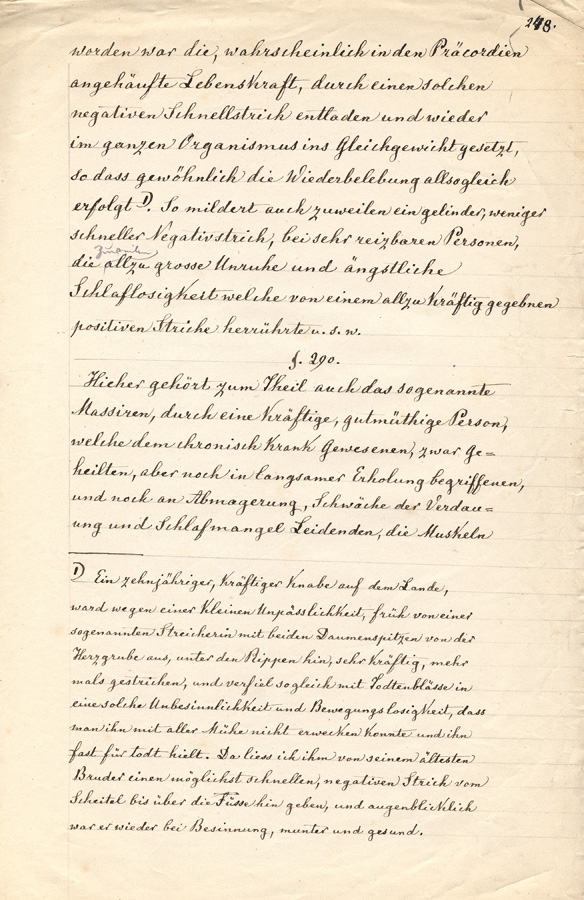 248.
worden war die, wahrscheinlich in den Präcordien
angehäufte Lebenskraft, durch einen solchen
negativen Schnellstrich entladen und wieder
im ganzen Organismus ins Gleichgewicht gesetzt,
so dass gewöhnlich die Wiederbelebung allsogleich
erfolgt 1). So mildert auch zuweilen ein gelinder, weniger
schneller Negativstrich, bei sehr reizbaren Personen,
zuweilen
die allzu grosse Unruhe und ängstliche
Schlaflosigkeit welche von einem allzu kräftig gegebnen
positiven Striche herrührte u. s. w.
§. 290.
Hieher gehört zum Theil auch das sogenannte
Massiren, durch eine kräftige, gutmüthige Person,
welche dem chronisch Krank Gewesenen, zwar Ge=
heilten, aber noch in langsamer Erholung begriffenen,
und noch an Abmagerung, Schwäche der Verdau=
ung und Schlafmangel Leidenden, die Muskeln
1) Ein zehnjähriger, kräftiger Knabe auf dem Lande,
ward wegen einer kleinen Unpässlichkeit, früh von einer
sogenannten Streicherin mit beiden Daumenspitzen von der
Herzgrube aus, unter den Rippen hin, sehr kräftig, mehr
mals gestrichen, und verfiel sogleich mit Todtenblässe in
eine solche Unbesinnlichkeit und Bewegungslosigkeit, dass
man ihn mit aller Mühe nicht erwecken konnte und ihn
fast für todt hielt. Da liess ich ihm von seinem ältesten
Bruder einen möglichst schnellen, negativen Strich vom
Scheitel bis über die Füsse hin geben, und augenblicklich
war er wieder bei Besinnung, munter und gesund.